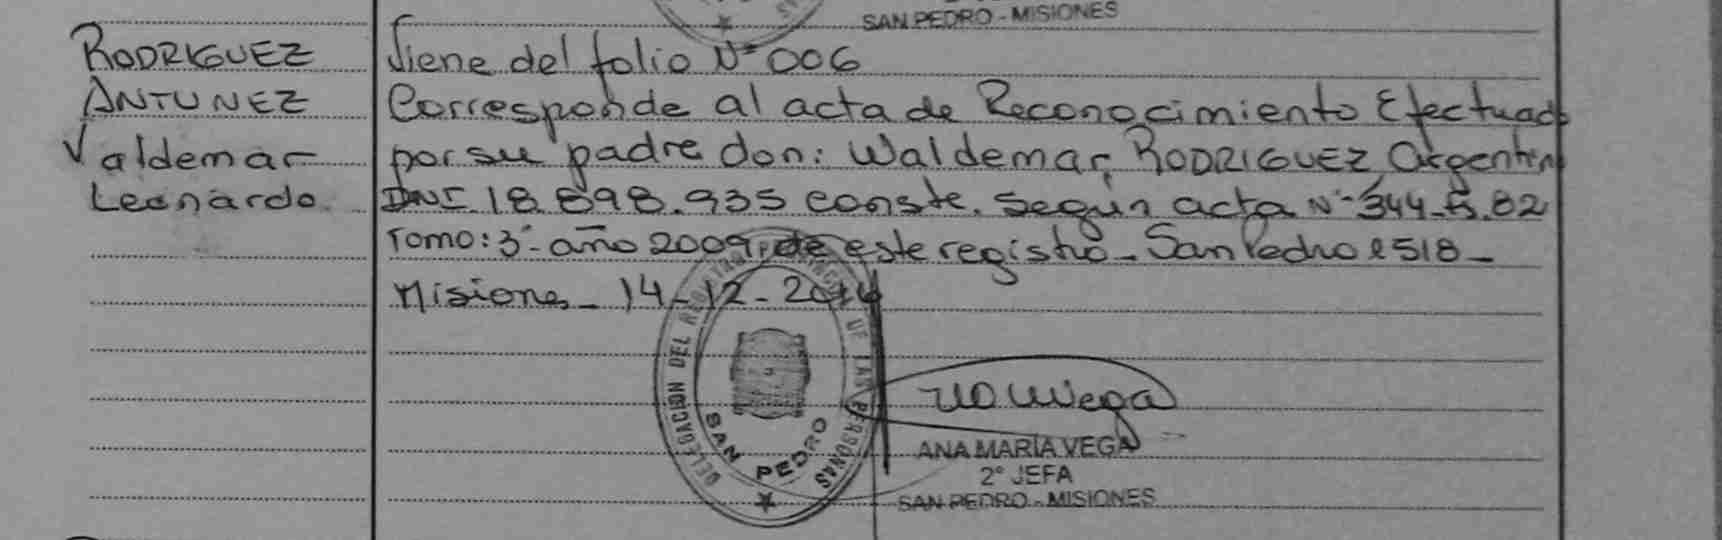 SAN PEDRO - MISIONES
RODRIGUEZ
ANTUNEZ
Valdemar
Leonardo.
Viene del folio Nº 006
Corresponde al acta de Reconocimiento Efectuado
por su padre don: Waldemar RODRIGUEZ, Argentino
DNI. 18.898.935 conste. Según acta Nº 344-Fº.82
Tomo: 3º- año 2009, de este registro - San Pedro 2518 -
Misiones - 14-12-2014
DELEGACION DEL REGISTRO PROVINCIAL DE LAS PERSONAS
SAN PEDRO
ANA MARÍA VEGA
2° JEFA
SAN PEDRO - MISIONES